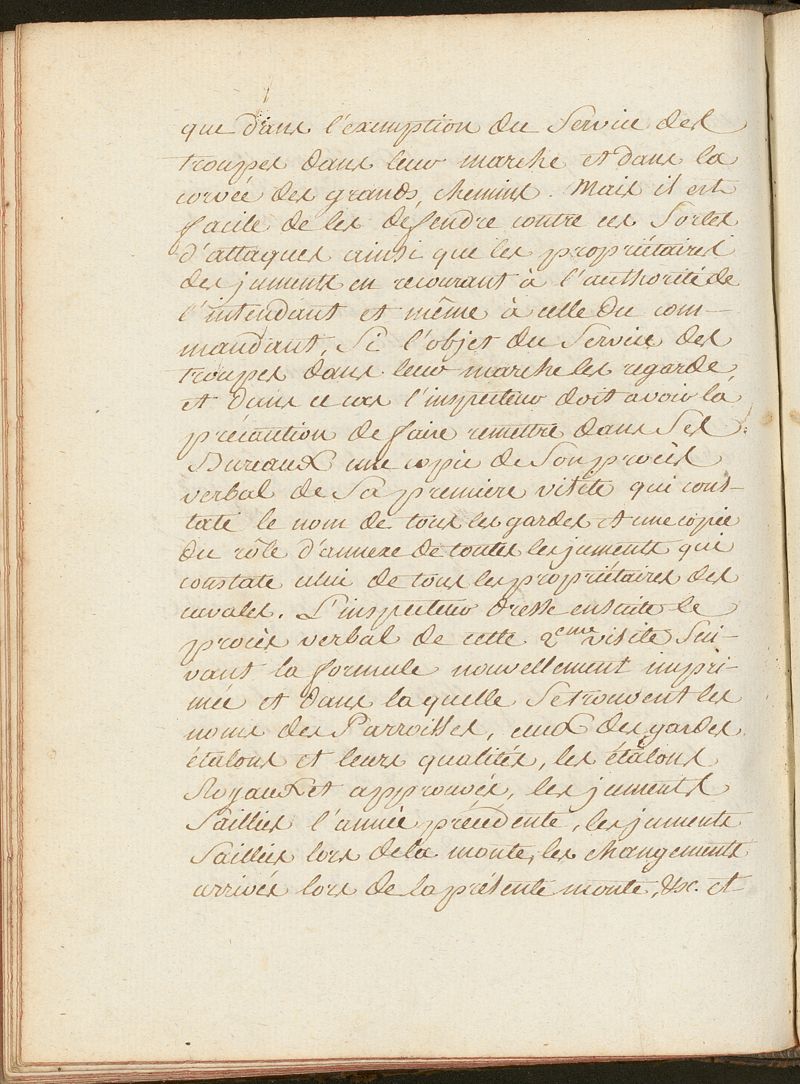 que dans l'exemption du Service des
troupes dans leur marche et dans la
corvée des grands chemins. Mais il est
facile de les défendre contre ces Sortes
d'attaques ainsi que les propriétaires
des juments en recourant à l'authorité de
l'intendant et même à celle du com-
mandant, Si l'objet du Service des
troupes dans leur marche les regarde,
et dans ce cas l'inspecteur doit avoir la
précaution de faire remettre dans Ses
Bureaux une copie de Son procès
verbal de Sa première visite qui cons-
tate le nom de tous les gardes et une copie
du rôle d'annexe de toutes les juments qui
constate celui de tous les propriétaires des
cavales. L'inspecteur dresse ensuite le
procès verbal de cette 2eme visite Sui-
vant la formule nouvellement impri-
mée et dans laquelle Se trouvent les
noms des Parroisses, ceux des gardes
étalons et leurs qualités, les étalons
Royaux et approuvés, les juments
Saillies l'année précédente, les juments
Saillies lors de la monte, les changements
arrivés lors de la présente monte, &c. et